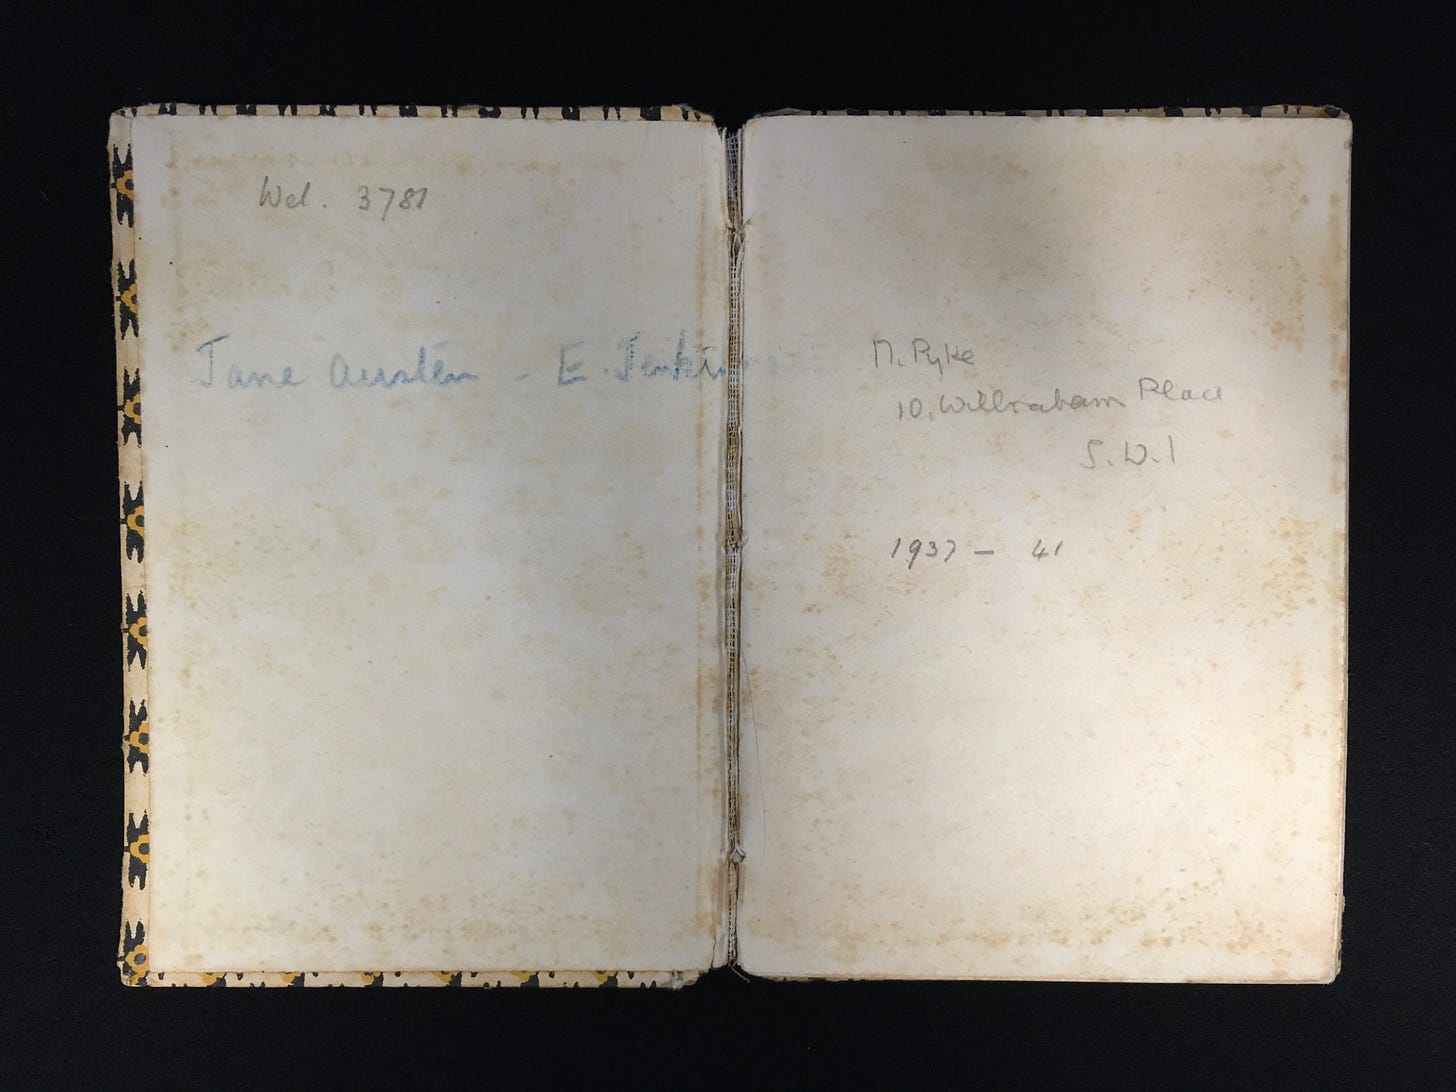 Wel. 3781
Jane Austen - E. Jenkins
M. Pyke
10, Willbraham Place
S.W.1
1937 - 41